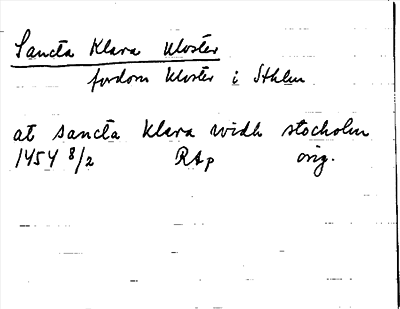 Sancta Klara kloster
fordom kloster i Sthlm
at sancta klara widh stocholm
1454 8/2 RAp orig.